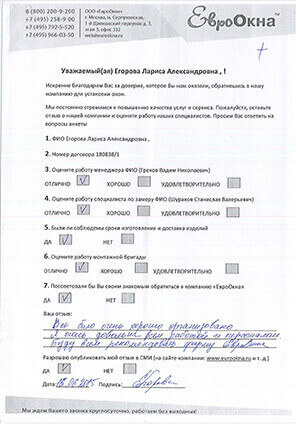 8 (800) 200-9-200
+7 (495) 258-9-00
+7 (495) 792-5-520
+7 (495) 966-03-50
ООО «ЕвроОкна»
г. Москва, м. Серпуховская,
1-й Щипковский переулок д. 3,
этаж 3, офис 332
web@eurookna.ru
ЕвроОкна®
Уважаемый(ая) Егорова Лариса Александровна , !
Искренне благодарим Вас за доверие, которое Вы нам оказали, обратившись в нашу
компанию для установки окон.
Мы постоянно стремимся к повышению качества услуг и сервиса. Пожалуйста, оставьте
отзыв о нашей компании и оцените работу наших специалистов. Просим Вас ответить на
вопросы анкеты
1. ФИО Егорова Лариса Александровна ,
2. Номер договора 180838/1
3. Оцените работу менеджера ФИО (Грехов Вадим Николаевич)
ОТЛИЧНО ХОРОШО УДОВЛЕТВОРИТЕЛЬНО
4. Оцените работу специалиста по замеру ФИО (Шураков Станислав Валерьевич)
ОТЛИЧНО ХОРОШО УДОВЛЕТВОРИТЕЛЬНО
5. Были ли соблюдены сроки изготовления и доставки изделий
ДА НЕТ
6. Оцените работу монтажной бригады
ОТЛИЧНО ХОРОШО УДОВЛЕТВОРИТЕЛЬНО
7. Посоветовали бы Вы своим знакомым обратиться в компанию «ЕвроОкна»
ДА НЕТ
Ваш отзыв:
Все было очень хорошо организовано
Я очень довольна всем работой и персоналом
Буду всем рекомендовать фирму Евроокна
Разрешаю опубликовать мой отзыв в СМИ (на сайте компании: www.eurookna.ru и т. д.)
ДА НЕТ
Дата: Подпись:
Мы ждем Вашего звонка круглосуточно, работаем без выходных!